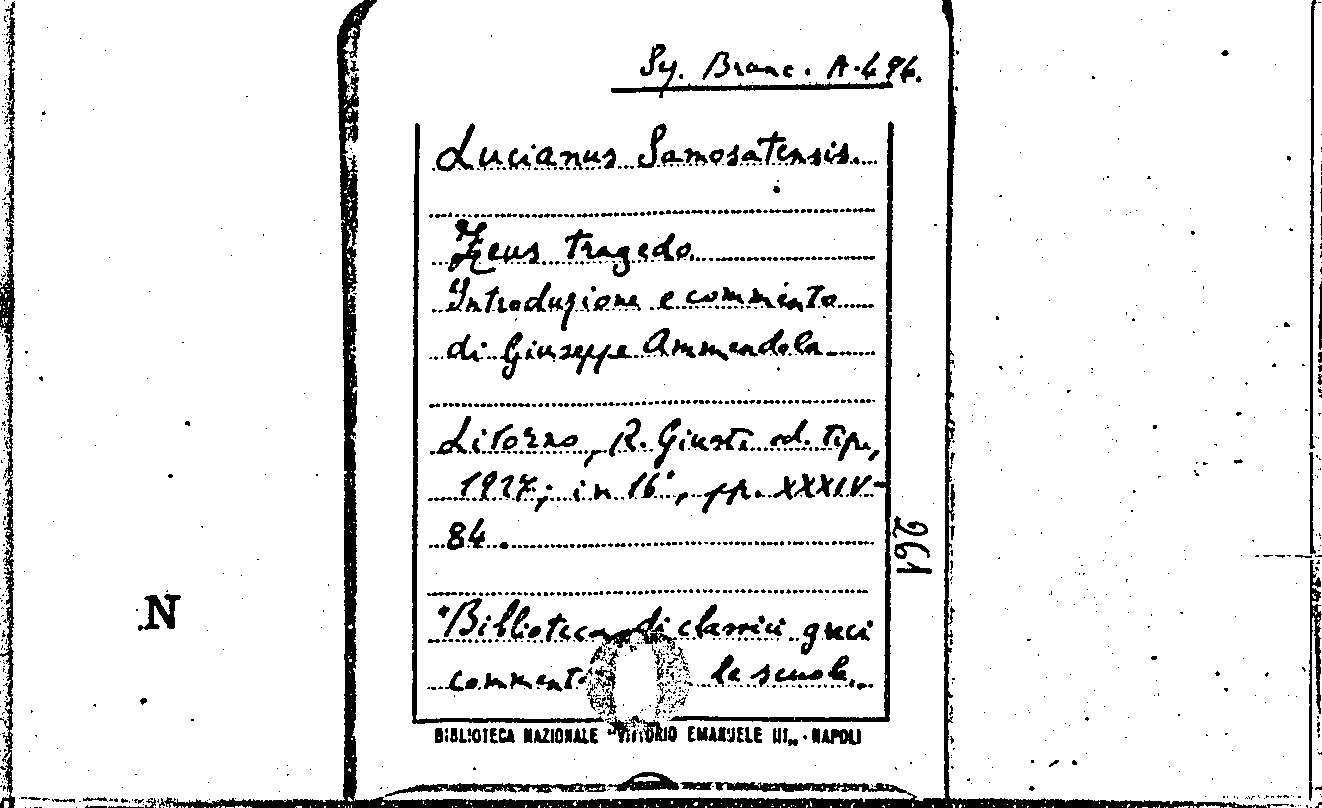 Sy. Branc. A. 496.
Lucianus Samosatensis.
Zeus tragedo
Introduzione e commento
di Giuseppe Ammendola
Livorno, R. Giusti ed. tip.,
1927; in 16°, pp. XXXIV-
84.
261
N
"Biblioteca di classici greci
commenti le scuole.
BIBLIOTECA NAZIONALE "VITTORIO EMANUELE III„ - NAPOLI